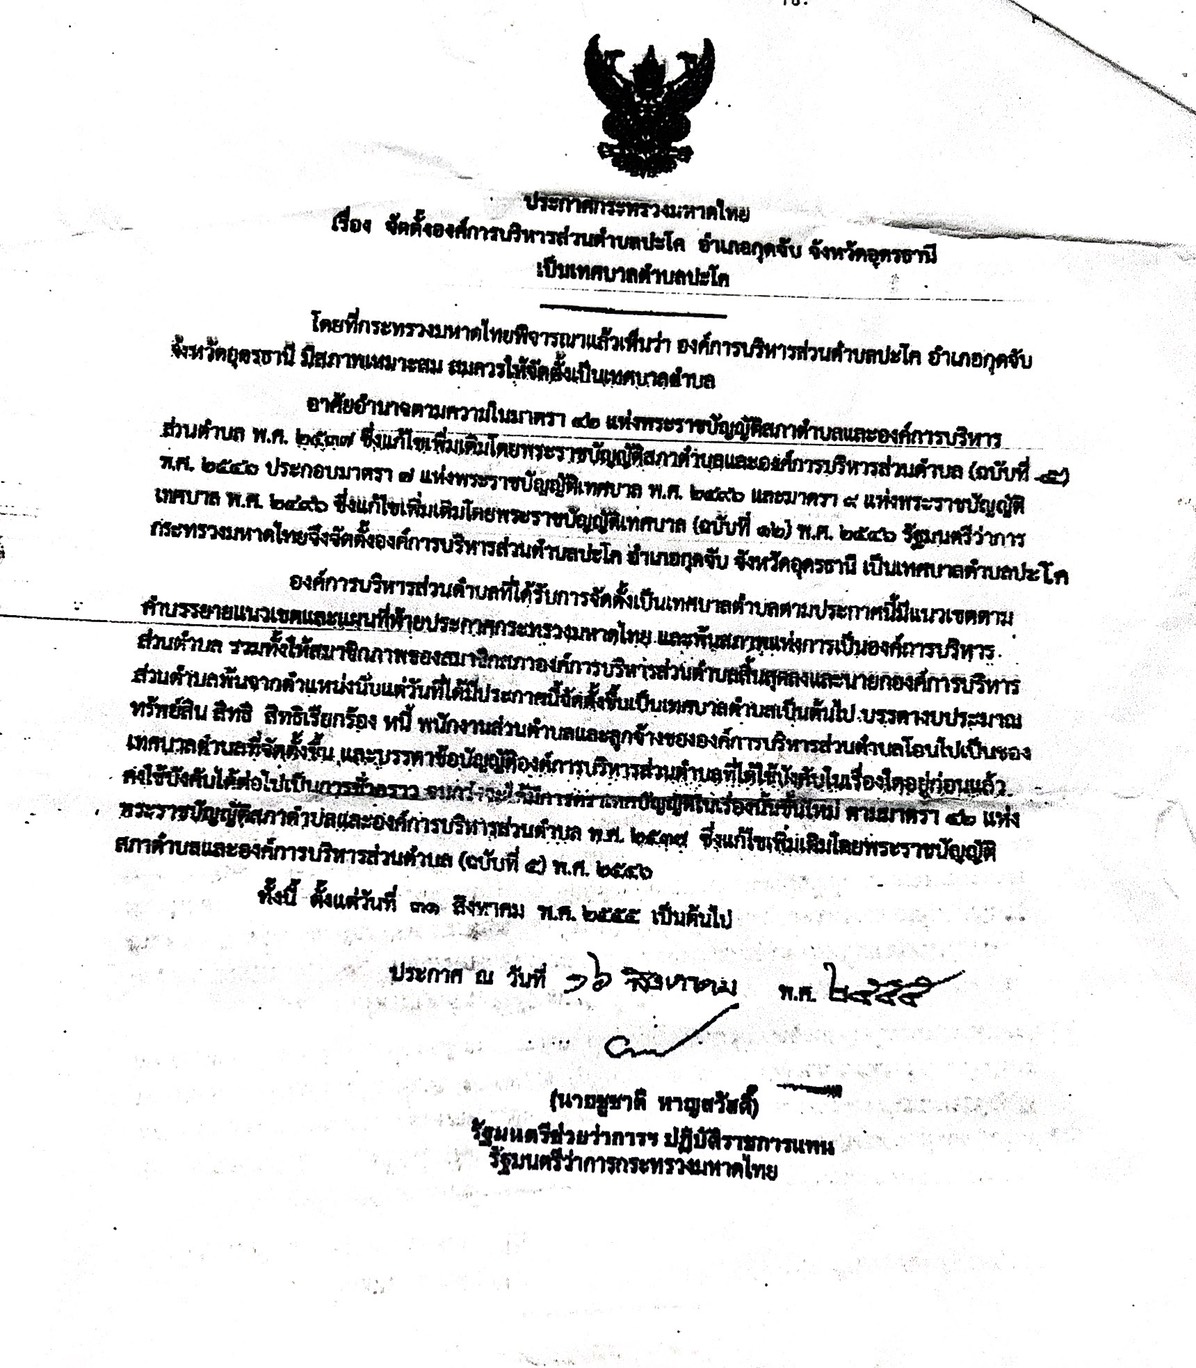 ประกาศกระทรวงมหาดไทย
เรื่อง จัดตั้งองค์การบริหารส่วนตำบลปะโค อำเภอกุดจับ จังหวัดอุดรธานี
เป็นเทศบาลตำบลปะโค
โดยที่กระทรวงมหาดไทยพิจารณาแล้วเห็นว่า องค์การบริหารส่วนตำบลปะโค อำเภอกุดจับ
จังหวัดอุดรธานี มีสภาพเหมาะสม สมควรให้จัดตั้งเป็นเทศบาลตำบล
อาศัยอำนาจตามความในมาตรา ๔๒ แห่งพระราชบัญญัติสภาตำบลและองค์การบริหาร
ส่วนตำบล พ.ศ. ๒๕๓๗ ซึ่งแก้ไขเพิ่มเติมโดยพระราชบัญญัติสภาตำบลและองค์การบริหารส่วนตำบล (ฉบับที่ ๕)
พ.ศ. ๒๕๔๖ ประกอบมาตรา ๗ แห่งพระราชบัญญัติเทศบาล พ.ศ. ๒๔๙๖ และมาตรา ๙ แห่งพระราชบัญญัติ
เทศบาล พ.ศ. ๒๔๙๖ ซึ่งแก้ไขเพิ่มเติมโดยพระราชบัญญัติเทศบาล (ฉบับที่ ๑๒) พ.ศ. ๒๕๔๖ รัฐมนตรีว่าการ
กระทรวงมหาดไทยจึงจัดตั้งองค์การบริหารส่วนตำบลปะโค อำเภอกุดจับ จังหวัดอุดรธานี เป็นเทศบาลตำบลปะโค
องค์การบริหารส่วนตำบลที่ได้รับการจัดตั้งเป็นเทศบาลตำบลตามประกาศนี้มีแนวเขตตาม
คำบรรยายแนวเขตและแผนที่ท้ายประกาศกระทรวงมหาดไทย และพ้นสภาพแห่งการเป็นองค์การบริหาร
ส่วนตำบล รวมทั้งให้สมาชิกภาพของสมาชิกสภาองค์การบริหารส่วนตำบลสิ้นสุดลงและนายกองค์การบริหาร
ส่วนตำบลพ้นจากตำแหน่งนับแต่วันที่ได้มีประกาศนี้จัดตั้งขึ้นเป็นเทศบาลตำบลเป็นต้นไป บรรดางบประมาณ
ทรัพย์สิน สิทธิ สิทธิเรียกร้อง หนี้ พนักงานส่วนตำบลและลูกจ้างขององค์การบริหารส่วนตำบลโอนไปเป็นของ
เทศบาลตำบลที่จัดตั้งขึ้น และบรรดาข้อบัญญัติองค์การบริหารส่วนตำบลที่ได้ใช้บังคับในเรื่องใดอยู่ก่อนแล้ว
คงใช้บังคับได้ต่อไปเป็นการชั่วคราว จนกว่าจะได้มีการตราเทศบัญญัติในเรื่องนั้นขึ้นใหม่ ตามมาตรา ๔๒ แห่ง
พระราชบัญญัติสภาตำบลและองค์การบริหารส่วนตำบล พ.ศ. ๒๕๓๗ ซึ่งแก้ไขเพิ่มเติมโดยพระราชบัญญัติ
สภาตำบลและองค์การบริหารส่วนตำบล (ฉบับที่ ๕) พ.ศ. ๒๕๔๖
ทั้งนี้ ตั้งแต่วันที่ ๓๑ สิงหาคม พ.ศ. ๒๕๕๕ เป็นต้นไป
ประกาศ ณ วันที่ ๑๖ สิงหาคม พ.ศ. ๒๕๕๕
(นายชูชาติ หาญสวัสดิ์)
รัฐมนตรีช่วยว่าการฯ ปฏิบัติราชการแทน
รัฐมนตรีว่าการกระทรวงมหาดไทย